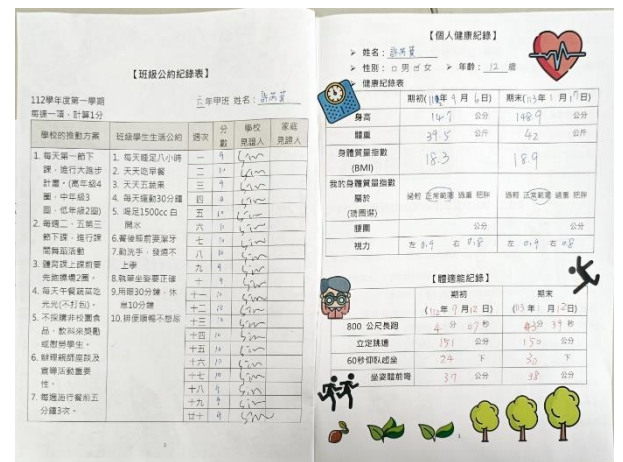 【班級公約紀錄表】
112學年度第一學期
每達一項，計算1分
六年甲班 姓名：
學校的推動方案 班級學生生活公約 週次 分數 學校見證人 家庭見證人
1. 每天第一節下
課，進行大跑步
計畫。(高年級4
圈，中年級3
圈，低年級2圈)
2. 每週二、五第三
節下課，進行課
間舞蹈活動
3. 體育課上課前要
先跑操場2圈。
4. 每天午餐蔬菜吃
光光(不打包)。
5. 不採購非校園食
品、飲料來獎勵
或慰勞學生。
6. 辦理親師座談及
宣導活動重要
性。
7. 每週施行餐前五
分鐘3次。
1. 每天睡足八小時
2. 天天吃早餐
3. 天天五蔬果
4. 每天運動30分鐘
5. 喝足1500cc 白
開水
6.餐後睡前要潔牙
7.勤洗手，發燒不
上學
8.執筆坐姿要正確
9.用眼30分鐘，休
息10分鐘
10.排便順暢不憋尿
一 9
二 10
三 9
四 9
五 10
六
七 10
八 10
九 9
十 9
十一 10
十二 10
十三 10
十四 10
十五 10
十六 10
十七 10
十八 9
十九 9
廿十 9
【個人健康紀錄】
➤ 姓名：
➤ 性別：□男 ☑女 ➤ 年齡：12 歲
➤ 健康紀錄表
期初(112年 9 月 6 日) 期末(113年 1 月 17日)
身高 147 公分 148.9 公分
體重 39.5 公斤 42 公斤
身體質量指數
(BMI) 18.3 18.9
我的身體質量指數
屬於
(請圈選)
過輕 正常範圍 過重 肥胖 過輕 正常範圍 過重 肥胖
腰圍 公分 公分
視力 左 0.9 右 0.8 左 0.9 右 0.8
【體適能紀錄】
期初 期末
(112年 9 月 12 日) (113年 1 月 12日)
800 公尺長跑 4 分 07 秒 分 39 秒
立定跳遠 151 公分 150 公分
60秒仰臥起坐 24 下 30 下
坐姿體前彎 37 公分 38 公分